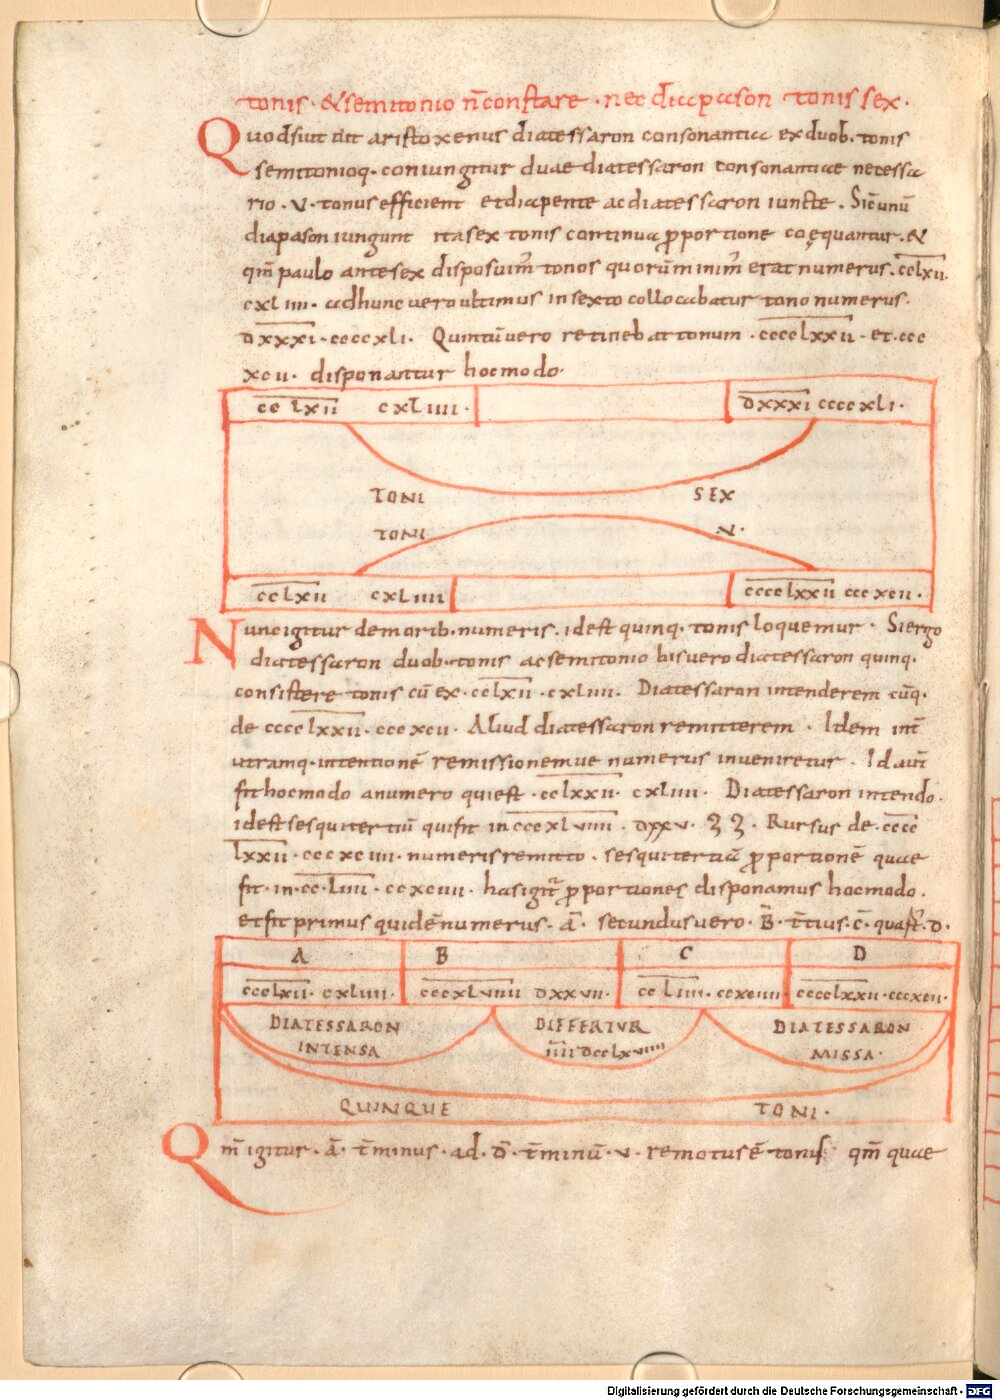 tonis · & semitonio n̄ constare · nec diapason tonis sex ·
Quodsiut ait aristoxenus diatessaron consonantia ex duob· tonis
semitonioq· coniungitur duae diatessaron consonantiae necessa
rio · v · tonus efficient et diapente ac diatessaron iuncte . Sic̄ unū
diapason iungunt ita sex tonis continua ꝓportione coęquantur · &
qm̄ paulo ante sex disposuim̄ tonos quorū minim̄ erat numerus . cclxii ·
cxliiii · adhunc vero ultimus in sexto collocabatur tono numerus ·
dxxxi · ccccxli · Quintū vero retinebat tonum · cccclxxii · et · ccc
xcii · disponantur hocmodo ·
cclxii cxliiii ·
dxxxi ccccxli ·
TONI SEX
TONI V ·
cclxii cxliiii
cccclxxii cccxcii ·
Nunc igitur demorib · numeris . idest quinq · tonis loquemur · Siergo
diatessaron duob · tonis ac semitonio bis vero diatessaron quinq ·
consistere tonis cū ex · cclxii · cxliiii · Diatessaron intenderem cūq ·
de cccclxxii · cccxcii · Aliud diatessaron remitterem · Idem int̄
utramq · intentionē remissionemve numerus inveniretur · Id aut̄
fit hocmodo anumero quiest · cclxxii · cxliiii · Diatessaron intendo ·
idest sesquitertiū quifit in cccxlviiii · dxxv · ʒ ʒ · Rursus de · cccc
lxxii · cccxciiii · numeris remitto · sesquitertiā ꝓportionē quae
fit · in · cc · liiii · ccxciiii · has igit̄ ꝓportionęs disponamus hocmodo .
et sit primus quidē numerus · ā · secundus vero · B̄ · t̄cius · c̄ · quart̄ · d ·
A B C D
ccclxii · cxliiii · cccxlviiii dxxvii · ccliiii · ccxciiii cccclxxii · cccxcii ·
DIATESSARON DIFFERTVR DIATESSARON
INTENSA iiii dcclxviiii MISSA ·
QUINQUE TONI ·
Qm̄ igitur · ā · t̄minus · ad · d̄ · t̄minū · v · remotus ē tonis qm̄ quae
Digitalisierung gefördert durch die Deutsche Forschungsgemeinschaft - DFG